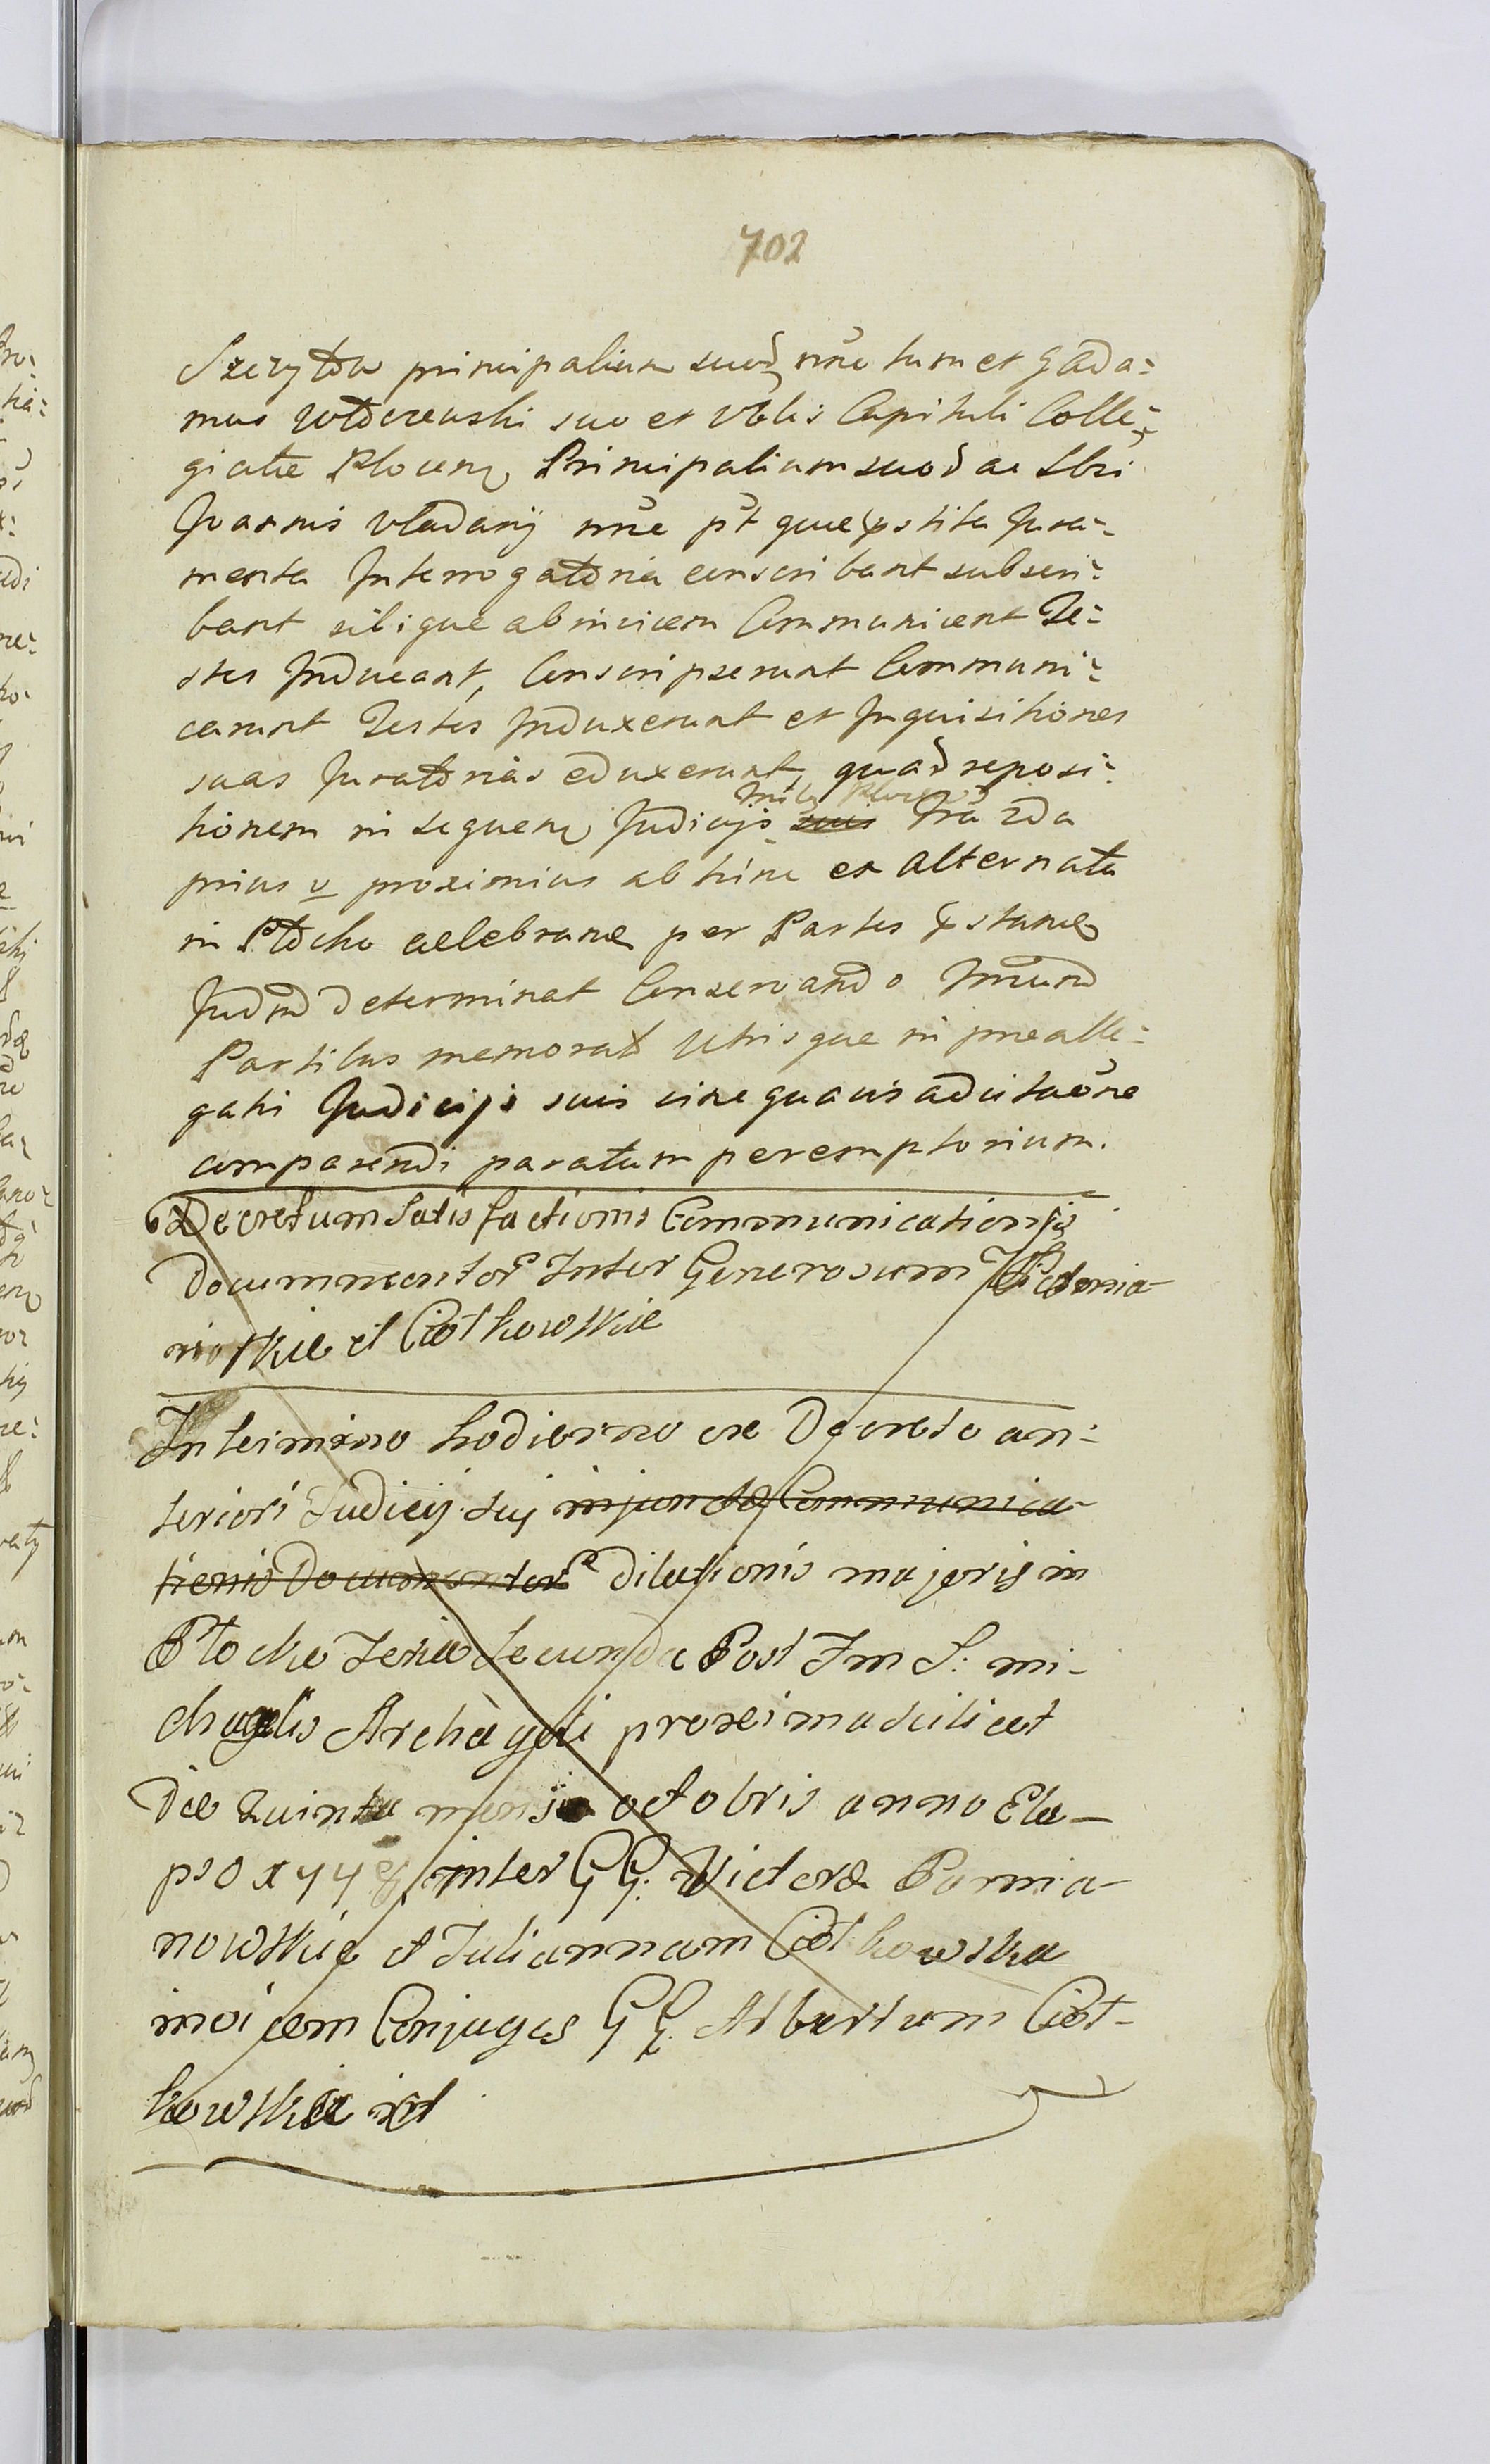 702
principalium suoꝝ nne tum et G Ada-
mus suo et Vblis Capituli Colle-
giatæ Plocens Principalium suoꝝ ac
Joannis Vladarij nne pt quæ pstita Jura-
menta Interrogatoria conscribant subscri-
bant sibique abinvicem Communicent Te-
stes Inducant, Conscripserunt Communi-
carunt Testes Induxerunt et Inquisitiones
suas Juratorias eduxerunt, quaꝝ reposi-
tionem in sequen Judicijs suis Tra
prius v proximius ab hinc ex alternata
in Płocko celebran per Partes pstand
Judm determinat Conservando
Partibus memorat Utrisque in prealle-
gatis Judicijs suis sine quavis adcitaõne
comparendi paratum peremptorium.
Decretum Satisfactionis Communicationis
Documentor Inter Generosum
et Ciołkowskie
In termino hodierno ex Decreto an-
teriori Judicij sui injunctæ Communica-
tionis Documentor Dilationis majoris in
Płocko Feria Secunda Post Fm S: Mi-
chaelis Archageli proxima scilicet
Die Quinta mensis octobris anno Ela-
pso inter GG. Victore Pornia-
nowskie et Juliannam Ciołkowska
invicem Conjuges GG. Albertum Cioł-
kowskie